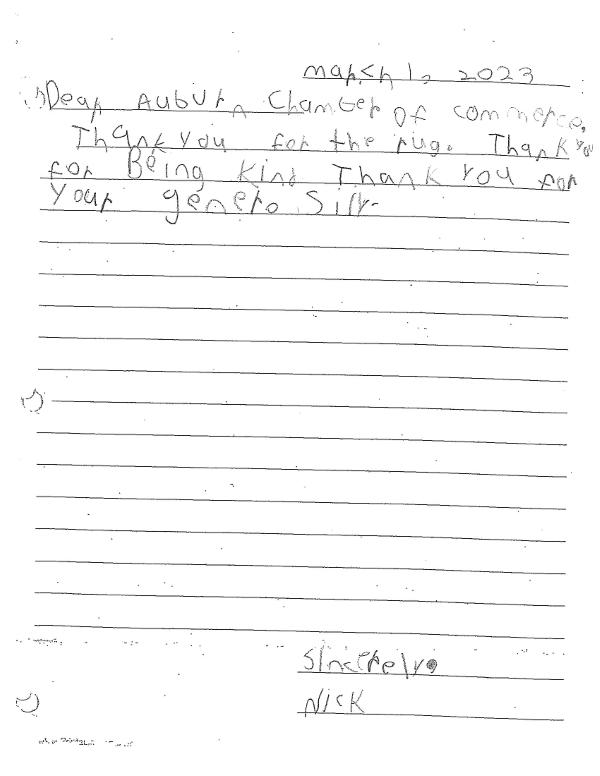 March 1, 2023
Dear Auburn Chamber of commerce,
Thank you for the rug. Thank you
for Being kind Thank you for
your genero
Sincerely,
Nick